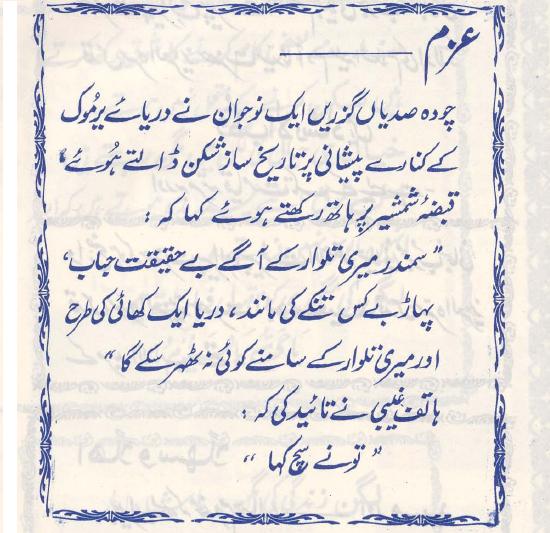 عزم
چودہ صدیاں گزریں ایک نوجوان نے دریائے یرموک
کے کنارے پیشانی پر تاریخ ساز شکن ڈالتے ہُوئے،
قبضۂ شمشیر پر ہاتھ رکھتے ہوئے کہا کہ :
”سمندر میری تلوار کے آگے بے حقیقت حباب،
پہاڑ بے کس تنکے کی مانند، دریا ایک کھائی کی طرح
اور میری تلوار کے سامنے کوئی نہ ٹھہر سکے گا“
ہاتف غیبی نے تائید کی کہ :
”تونے سچ کہا“